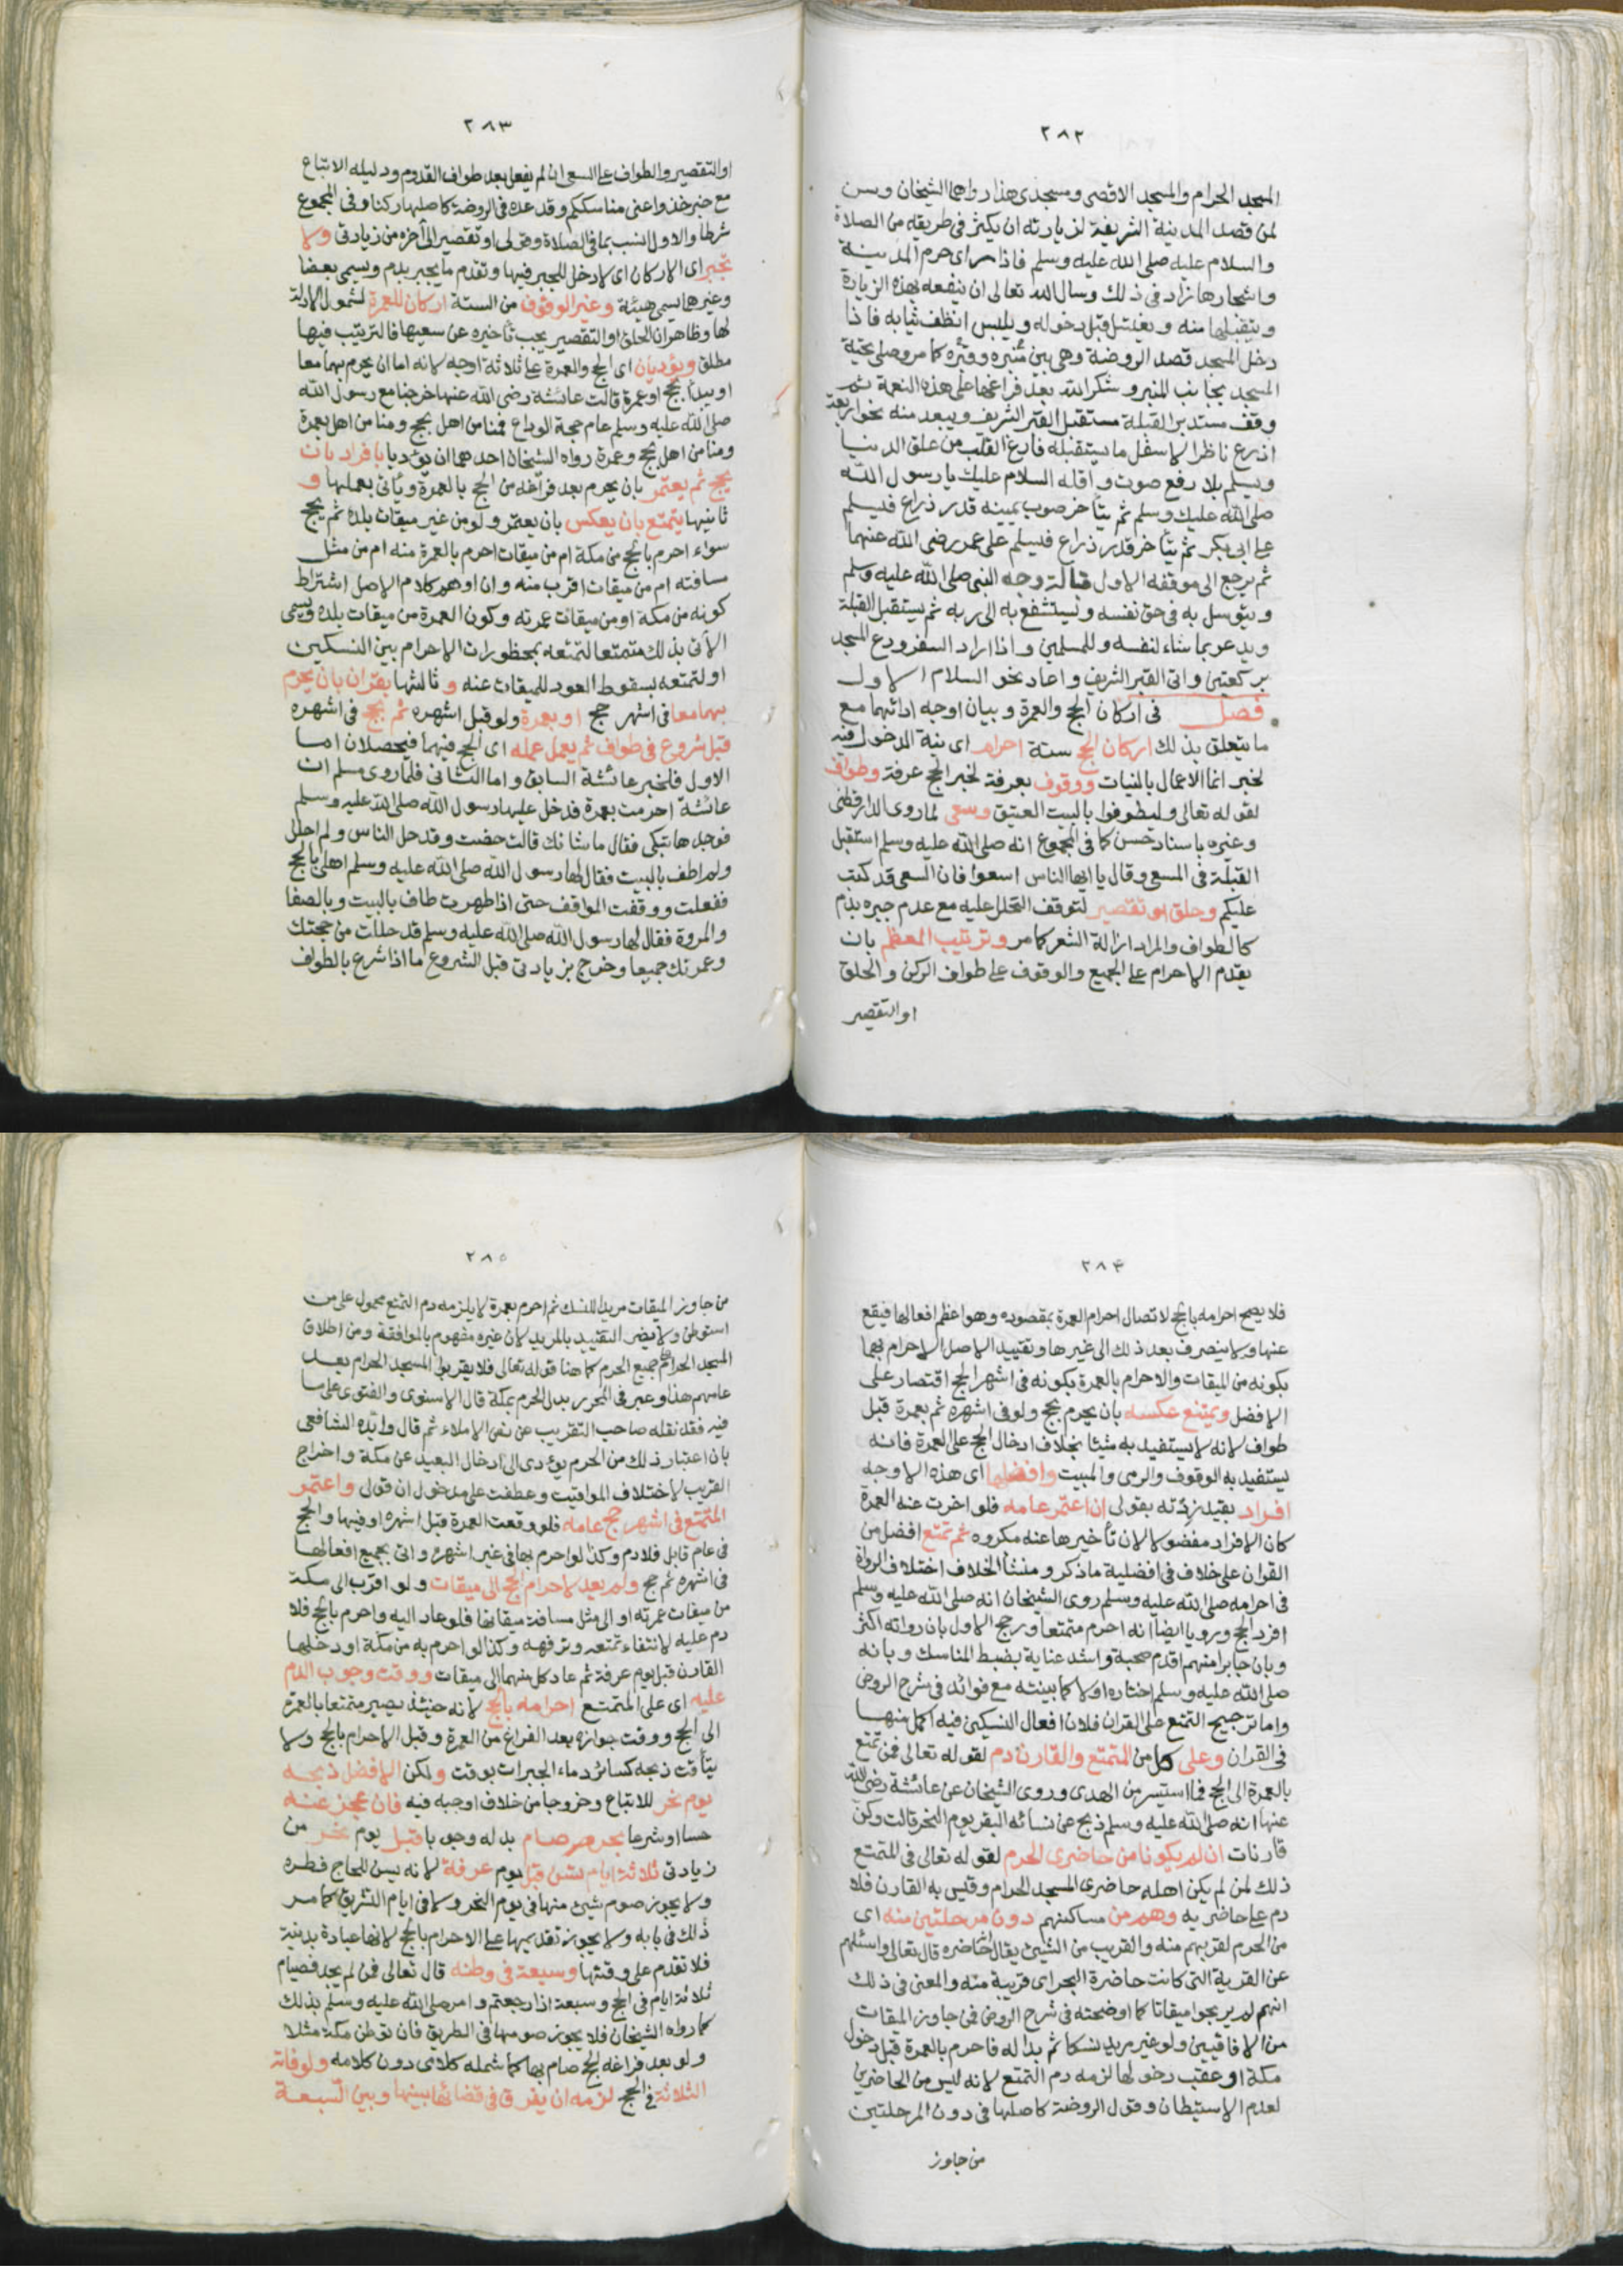 ٢٨٢
المسجد الحرام والمسجد الاقصى ومسجدى هذا رواهما الشيخان ويسن
لمن قصد المدينة الشريفة لزيارته ان يكثر فى طريقه من الصلاة
والسلام عليه صلى الله عليه وسلم فاذا راى حرم المدينة
واشجارها زاد فى ذلك وسال الله تعالى ان ينفعه بهذه الزيارة
ويتقبلها منه ويغتسل قبل دخوله ويلبس انظف ثيابه فاذا
دخل المسجد قصد الروضة وهى بين منبره وقبره كما مر وصلى تحية
المسجد بجانب المنبر وشكر الله بعد فراغها على هذه النعمة ثم
وقف مستدبر القبلة مستقبل القبر الشريف ويبعد منه نحو اربعة
اذرع ناظرا لاسفل ما يستقبله فارغ القلب من علق الدنيا
ويسلم بلا رفع صوت واقله السلام عليك يا رسول الله
صلى الله عليك وسلم ثم يتأخر صوب يمينه قدر ذراع فيسلم
على ابى بكر ثم يتأخر قدر ذراع فيسلم على عمر رضى الله عنهما
ثم يرجع الى موقفه الاول قبالة وجه النبى صلى الله عليه وسلم
ويتوسل به فى حق نفسه ويستشفع به الى ربه ثم يستقبل القبلة
ويدعو بما شاء لنفسه وللمسلمين واذا اراد السفر ودع المسجد
بركعتين واتى القبر الشريف واعاد نحو السلام الاول
فصل فى اركان الحج والعمرة وبيان اوجه ادائهما مع
ما يتعلق بذلك اركان الحج ستة احرام اى نية الدخول فيه
لخبر انما الاعمال بالنيات ووقوف بعرفة لخبر الحج عرفة وطواف
لقوله تعالى وليطوفوا بالبيت العتيق وسعى لما روى الدارقطنى
وغيره باسناد حسن كما فى المجموع انه صلى الله عليه وسلم استقبل
القبلة فى المسعى وقال يا ايها الناس اسعوا فان السعى قد كتب
عليكم وحلق او تقصير لتوقف التحلل عليه مع عدم جبره بدم
كالطواف والمراد ازالة الشعر كما مر وترتيب المعظم بان
يقدم الاحرام على الجميع والوقوف على طواف الركن والحلق
او التقصير
٢٨٣
او التقصير والطواف على السعى ان لم يفعل بعد طواف القدوم ودليله الاتباع
مع خبر خذوا عنى مناسككم وقد عده فى الروضة كاصلها ركنا وفى المجموع
شرطا والاول انسب بما فى الصلاة وقولى او تقصير الى آخره من زيادتى ولا
تجبر اى الاركان اى لا دخل للجبر فيها وتقدم ما يجبر بدم ويسمى بعضا
وغيرهما يسمى هيئة وغير الوقوف من الستة اركان للعمرة لشمول الادلة
لها وظاهر ان الحلق او التقصير يجب تأخيره عن سعيها فالترتيب فيها
مطلق ويؤديان اى الحج والعمرة على ثلاثة اوجه لانه اما ان يحرم بهما معا
او يبدأ بحج او عمرة قالت عائشة رضى الله عنها خرجنا مع رسول الله
صلى الله عليه وسلم عام حجة الوداع فمنا من اهل بحج ومنا من اهل بعمرة
ومنا من اهل بحج وعمرة رواه الشيخان احدهما ان يؤديا بافراد بان
يحج ثم يعتمر بان يحرم بعد فراغه من الحج بالعمرة ويأتى بعملها و
ثانيها بتمتع بان يعكس بان يعتمر ولو من غير ميقات بلده ثم يحج
سواء احرم بالحج من مكة ام من ميقات احرم بالعمرة منه ام من مثل
مسافته ام من ميقات اقرب منه وان اوهم كلام الاصل اشتراط
كونه من مكة او من ميقات عمرته وكون العمرة من ميقات بلده ويسمى
الآتى بذلك متمتعا لتمتعه بمحظورات الاحرام بين النسكين
او لتمتعه بسقوط العود للميقات عنه وثالثها بقران بان يحرم
بهما معا فى اشهر حج او بعمرة ولو قبل اشهره ثم بحج فى اشهره
قبل شروع فى طواف ثم يعمل عمله اى الحج فيهما فيحصلان اما
الاول فلخبر عائشة السابق واما الثانى فلما روى مسلم ان
عائشة احرمت بعمرة فدخل عليها رسول الله صلى الله عليه وسلم
فوجدها تبكى فقال ما شانك قالت حضت وقد حل الناس ولم احلل
ولم اطف بالبيت فقال لها رسول الله صلى الله عليه وسلم اهلى بالحج
ففعلت ووقفت المواقف حتى اذا طهرت طاف بالبيت وبالصفا
والمروة فقال لها رسول الله صلى الله عليه وسلم قد حللت من حجتك
وعمرتك جميعا وخرج بزيادتى قبل الشروع ما اذا شرع بالطواف
٢٨٤
فلا يصح احرامه بالحج لاتصال احرام العمرة بمقصوده وهو اعظم افعالها فيقع
عنها ولا ينصرف بعد ذلك الى غيرها وتقييد الاصل الاحرام بهما
بكونه من الميقات والاحرام بالعمرة بكونه فى اشهر الحج اقتصار على
الافضل ويمتنع عكسه بان يحرم بحج ولو فى اشهره ثم بعمرة قبل
طواف لانه لا يستفيد به شيئا بخلاف ادخال الحج على العمرة فانه
يستفيد به الوقوف والرمى والمبيت وافضلها اى هذه الاوجه
افراد بقيد زدته بقولى ان اعتمر عامه فلو اخرت عنه العمرة
كان الافراد مفضولا لان تأخيرها عنه مكروه ثم تمتع افضل من
القران على خلاف فى افضلية ما ذكر ومنشأ الخلاف اختلاف الرواة
فى احرامه صلى الله عليه وسلم روى الشيخان انه صلى الله عليه وسلم
افرد الحج ورويا ايضا انه احرم متمتعا ورجح الاول بان رواته اكثر
وبان جابرا منهم اقدم صحبة واشد عناية بضبط المناسك وبانه
صلى الله عليه وسلم اختاره اولا كما بينته مع فوائد فى شرح الروض
واما ترجيح التمتع على القران فلان افعال النسكين فيه اكمل منها
فى القران وعلى كل من المتمتع والقارن دم لقوله تعالى فمن تمتع
بالعمرة الى الحج فما استيسر من الهدى وروى الشيخان عن عائشة رضى الله
عنها انه صلى الله عليه وسلم ذبح عن نسائه البقر يوم النحر قالت وكن
قارنات ان لم يكونا من حاضرى الحرم لقوله تعالى فى المتمتع
ذلك لمن لم يكن اهله حاضرى المسجد الحرام وقيس به القارن فلا
دم على حاضريه وهم من مساكنهم دون مرحلتين منه اى
من الحرم لقربهم منه والقريب من الشيئ يقال حاضره قال تعالى واسئلهم
عن القرية التى كانت حاضرة البحر اى قريبة منه والمعنى فى ذلك
انهم لم يربحوا ميقاتا كما اوضحته فى شرح الروض فمن جاوز الميقات
من الافاقيين ولو غير مريد نسكا ثم بدا له فاحرم بالعمرة قبل دخول
مكة او عقب دخولها لزمه دم التمتع لانه ليس من الحاضرين
لعدم الاستيطان وقول الروضة كاصلها فى دون المرحلتين
من جاوز
٢٨٥
من جاوز الميقات مريدا للنسك ثم احرم بعمرة لا يلزمه دم التمتع محمول على من
استوطن ولا يضر التقييد بالمريد لان غيره مفهوم بالموافقة ومن اطلاق
المسجد الحرام على جميع الحرم كما هنا قوله تعالى فلا يقربوا المسجد الحرام بعد
عامهم هذا وعبر فى المحرر بدل الحرم بمكة قال الاسنوى والفتوى على ما
فيه فقد نقله صاحب التقريب عن نص الاملاء ثم قال وايده الشافعى
بان اعتبار ذلك من الحرم يؤدى الى ادخال البعيد عن مكة واخراج
القريب لاختلاف المواقيت وعطفت على مدخول ان قولى واعتمر
المتمتع فى اشهر حج عامه فلو وقعت العمرة قبل اشهره او فيها والحج
فى عام قابل فلا دم وكذا لو احرم بها فى غير اشهره واتى بجميع افعالها
فى اشهره ثم حج ولم يعد لاحرام الحج الى ميقات ولو اقرب الى مكة
من ميقات عمرته او الى مثل مسافة ميقاتها فلو عاد اليه واحرم بالحج فلا
دم عليه لانتفاء تمتعه وترفهه وكذا لو احرم به من مكة او دخلها
القارن قبل يوم عرفة ثم عاد كل منهما الى ميقات ووقت وجوب الدم
عليه اى على المتمتع احرامه بالحج لانه حينئذ يصير متمتعا بالعمرة
الى الحج ووقت جوازه بعد الفراغ من العمرة وقبل الاحرام بالحج ولا
يتأقت ذبحه كسائر دماء الجبرات بوقت ولكن الافضل ذبحه
يوم نحر للاتباع وخروجا من خلاف اوجبه فيه فان عجز عنه
حسا او شرعا بحرم صام بدله وجوبا قبل يوم نحر من
زيادتى ثلاثة ايام تسن قبل يوم عرفة لانه يسن للحاج فطره
ولا يجوز صوم شيئ منها فى يوم النحر ولا فى ايام التشريق كما مر
ذلك فى بابه ولا يجوز تقديمها على الاحرام بالحج لانها عبادة بدنية
فلا تقدم على وقتها وسبعة فى وطنه قال تعالى فمن لم يجد فصيام
ثلاثة ايام فى الحج وسبعة اذا رجعتم وامر صلى الله عليه وسلم بذلك
كما رواه الشيخان فلا يجوز صومها فى الطريق فان توطن مكة مثلا
ولو بعد فراغه لحج صام بها كما شمله كلامى دون كلامه ولو فاته
الثلاثة فى الحج لزمه ان يفرق فى قضائها بينها وبين السبعة